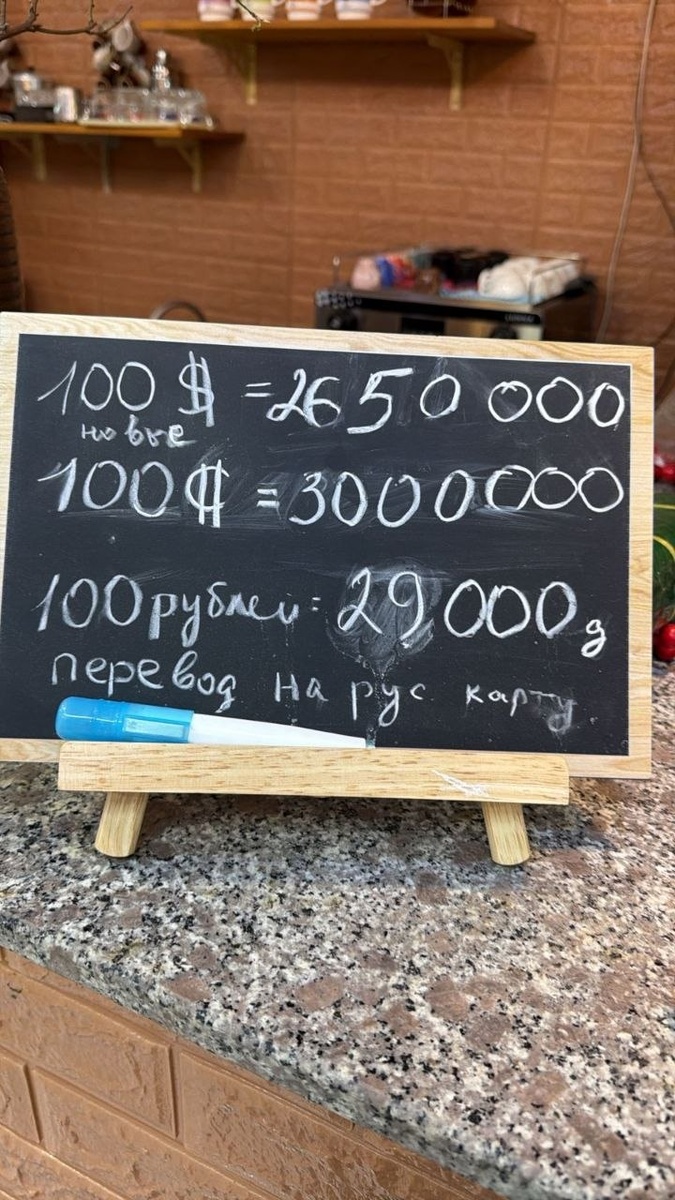 100$ = 2650 000
новые
100₵ = 3000000
100 рублей = 29000 g
перевод на рус карту